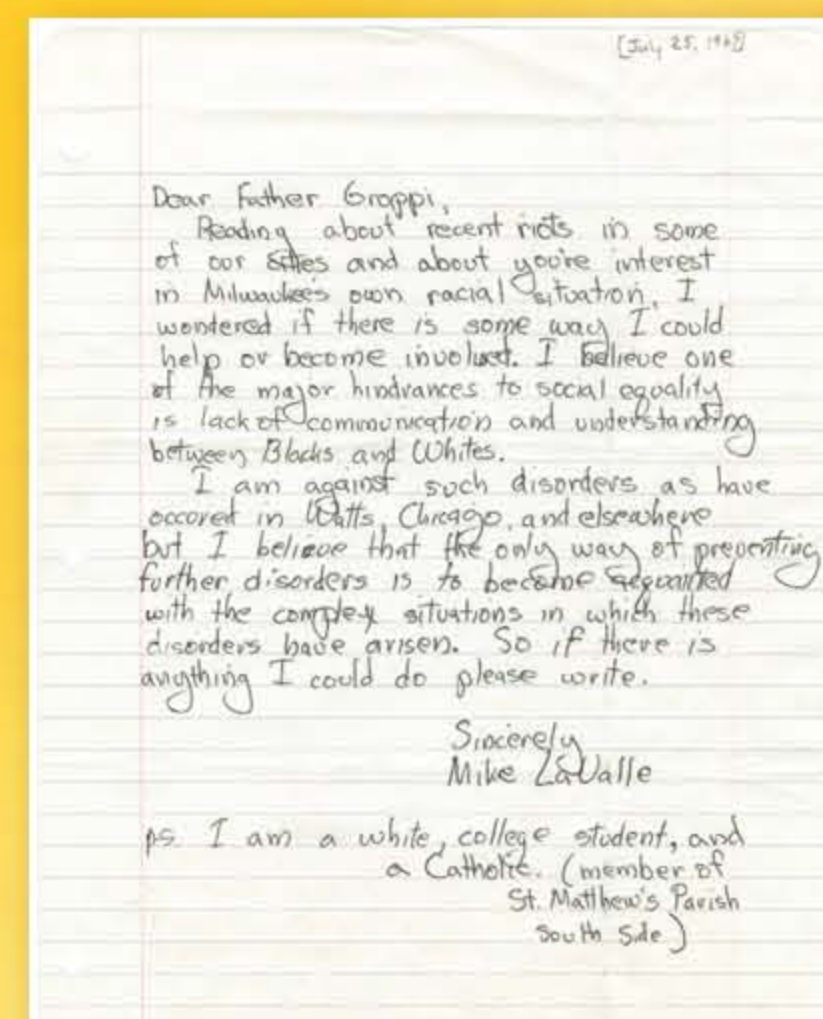 [July 25, 196?]
Dear Father Groppi,
Reading about recent riots in some
of our cities and about you're interest
in Milwaukee's own racial situation, I
wondered if there is some way I could
help or become involved. I believe one
of the major hindrances to social equality
is lack of communication and understanding
between Blacks and Whites.
I am against such disorders as have
occored in Watts, Chicago, and elsewhere
but I believe that the only way of preventing
further disorders is to become acquainted
with the complex situations in which these
disorders have arisen. So if there is
anything I could do please write.
Sincerely
Mike LaValle
ps. I am a white, college student, and
a Catholic. (member of
St. Matthew's Parish
South Side)